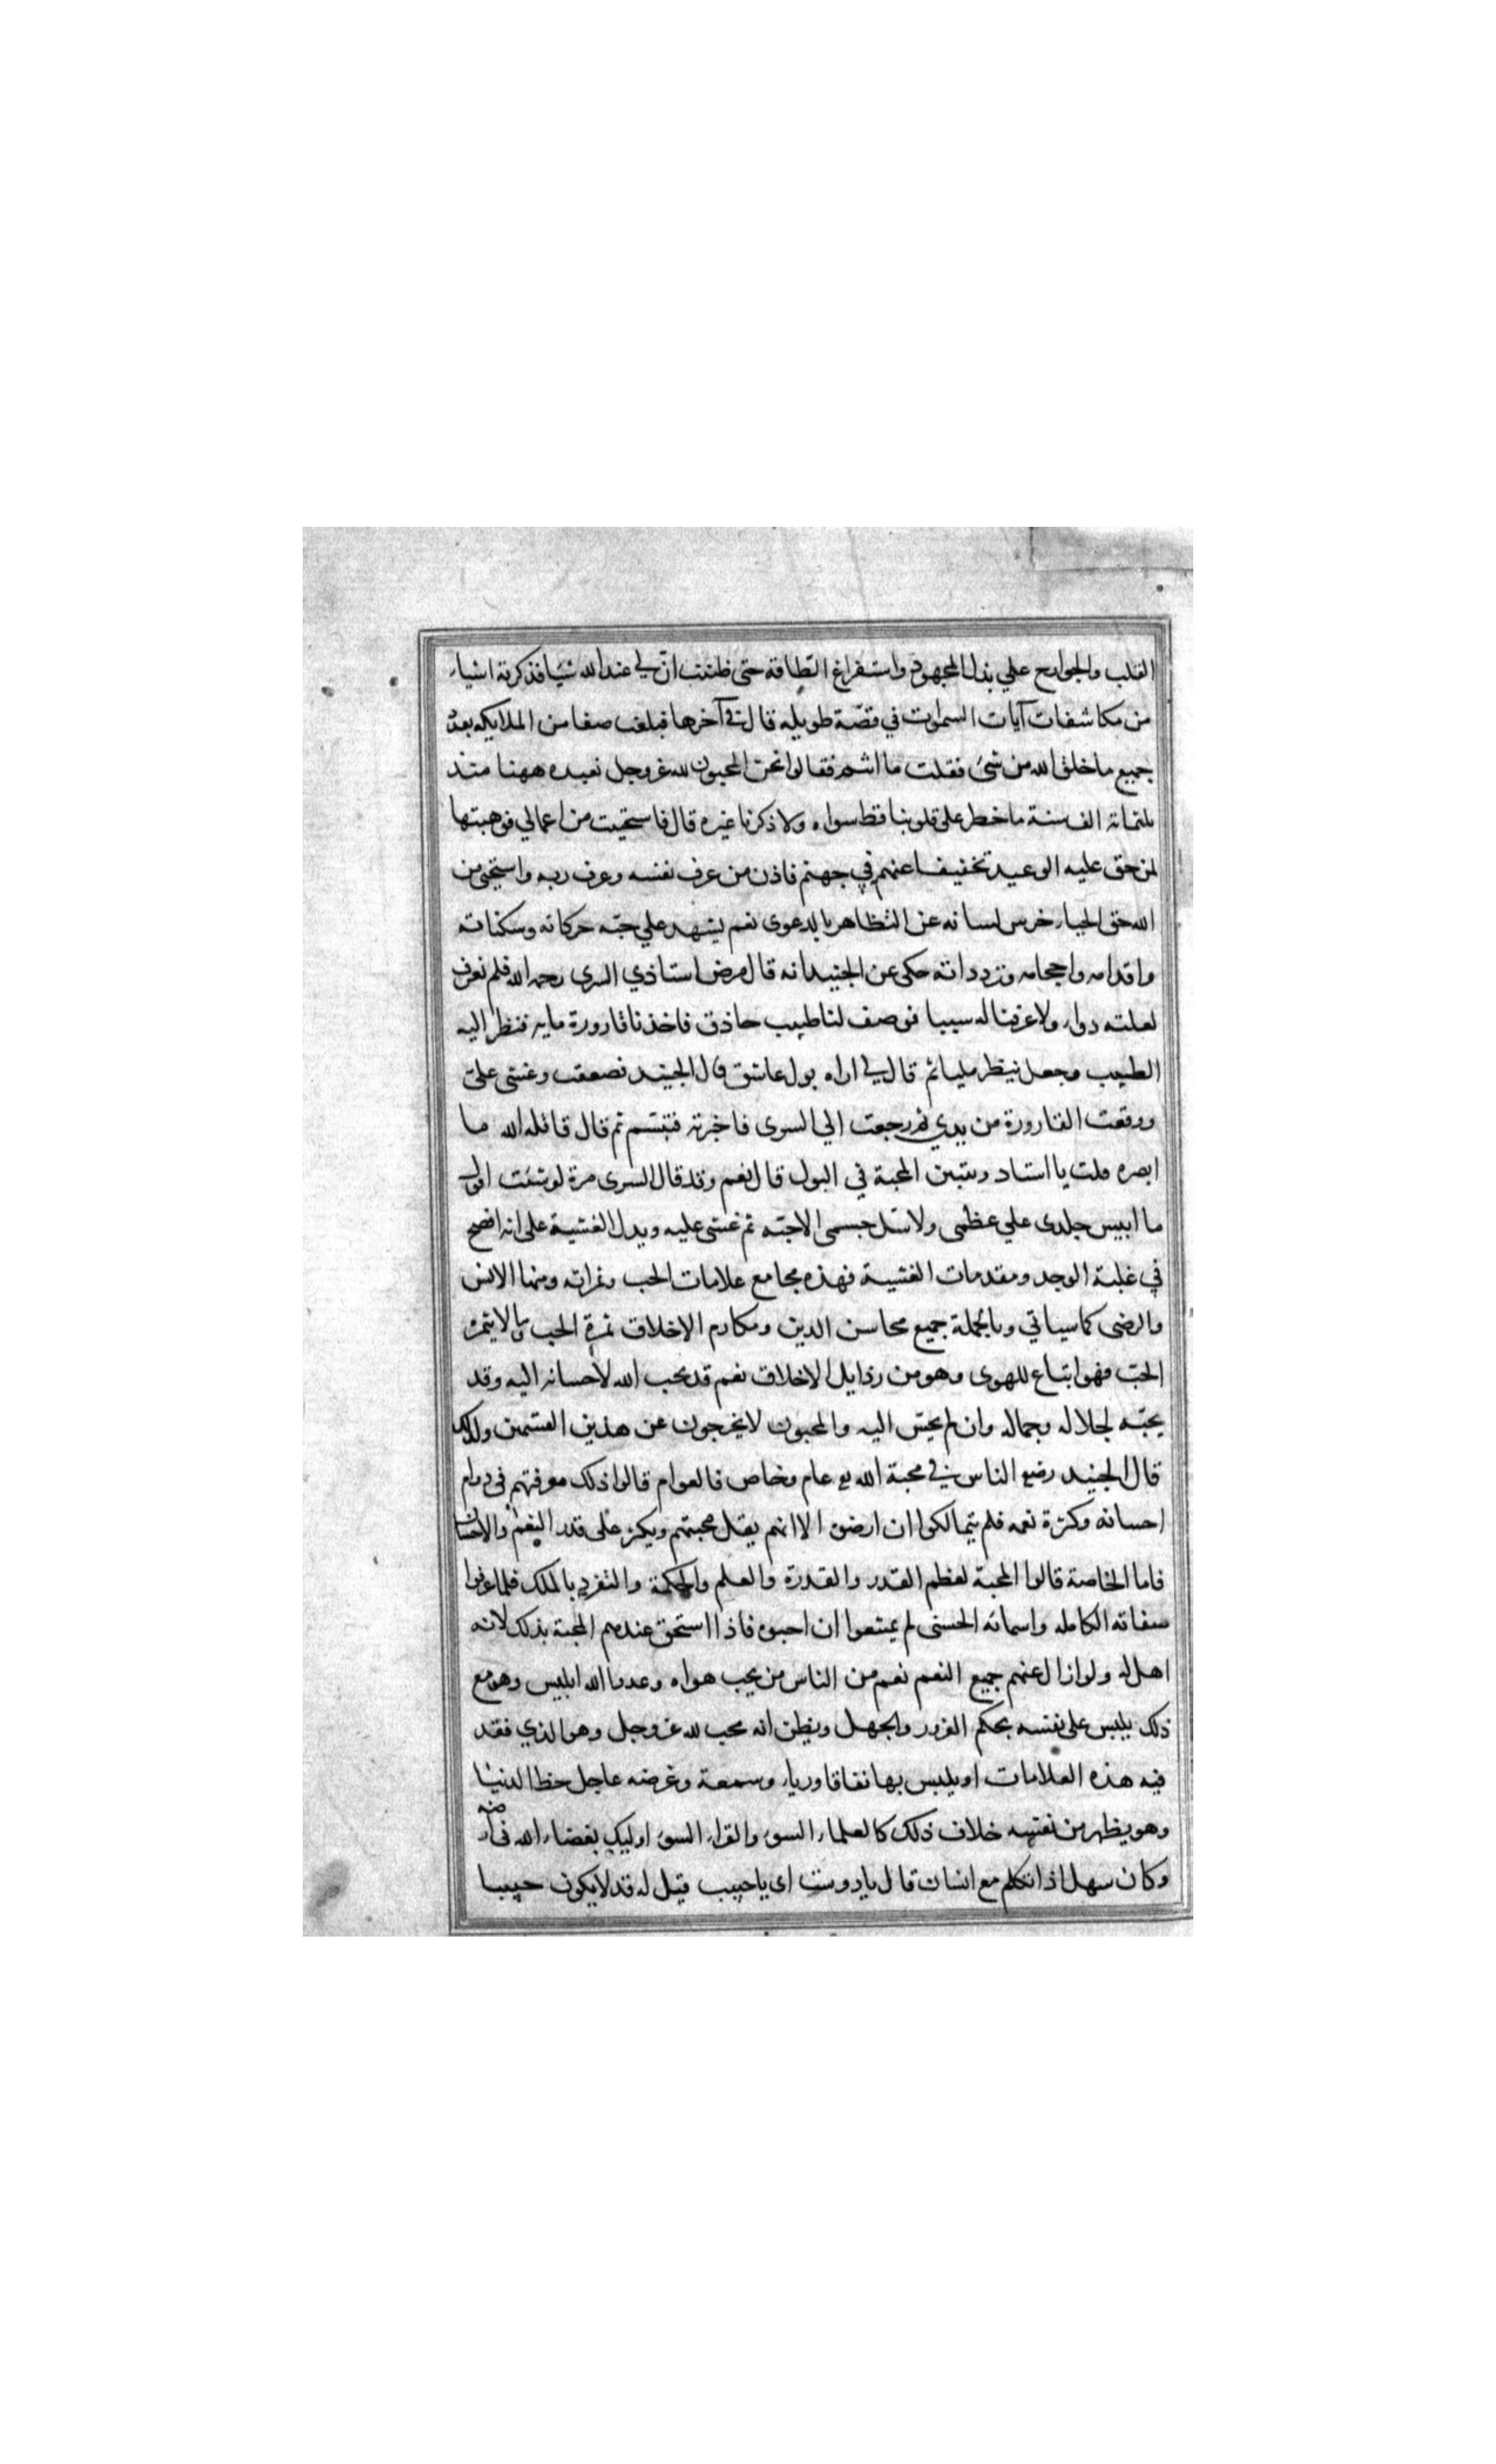 القلب والجوارح علي بذل المجهود واستفراغ الطاقة حتى ظننت ان لي عند الله شيا فذكرته اشياء
من مكاشفات آيات السموات في قصة طويله قال في آخرها فبلغت صفا من الملايكه بعدد
جميع ما خلق الله من شئ فقلت ما انتم فقالوا نحن المحبون لله عز وجل نعبده ههنا منذ
ثلثماته الف سنة ما خطر على قلوبنا قط سواه ولا ذكرنا غيره قال فاستحييت من اعمالي فوهبتها
لمن حق عليه الوعيد تخفيفا عنهم في جهنم فاذن من عرف نفسه وعرف ربه واستحى من
الله حق الحياء خرس لسانه عن التظاهر بالدعوى نعم يشهد علي حبه حركاته وسكناته
واقدامه واحجامه وتردداته حكى عن الجنيد انه قال مرض استاذي السرى رحمه الله فلم نعرف
لعلته دواء ولا عرفنا له سببا فوصف لنا طبيب حاذق فاخذنا قارورة مايه فنظر اليه
الطبيب وجعل ينظر مليا ثم قال لي اراه بول عاشق قال الجنيد فصعقت وغشى على
ووقعت القارورة من يدي ثم رجعت الي السرى فاخبرته فتبسم ثم قال قاتله الله ما
ابصره قلت يا استاد وتتبين المحبة في البول قال نعم وقد قال السرى مرة لو شئت اقول
ما ايبس جلدى علي عظمى ولا سل جسمى الا حبه ثم غشى عليه ويدل الغشية على انه افصح
في غلبة الوجد ومقدمات الغشية فهذه مجامع علامات الحب وثمراته ومنها الانس
والرضى كما سياتي وبالجملة جميع محاسن الدين ومكارم الاخلاق ثمرة الحب وما لا يثمره
الحب فهو اتباع للهوى وهو من رذايل الاخلاق نعم قد يحب الله لاحسانه اليه وقد
يحبه لجلاله وجماله وان لم يحسن اليه والمحبون لا يخرجون عن هذين القسمين ولذلك
قال الجنيد رضي الناس في محبة الله عام وخاص فالعوام قالوا ذلك معرفتهم في دوام
احسانه وكثرة نعمه فلم يتمالكوا ان ارضوه الا انهم يقل محبتهم ويكثر على قدر النعم والاحسان
فاما الخاصة قالوا المحبة لعظم القدر والقدرة والعلم والحكمة والتفرد بالملك فلما عرفوا
صفاته الكامله واسمائه الحسنى لم يمتنعوا ان احبوه فاذا استحق عندهم المحبة بذلك لانه
اهل له ولو ازال عنهم جميع النعم نعم من الناس من يحب هواه وعدو الله ابليس وهو مع
ذلك يلبس على نفسه بحكم الغرور والجهل ويظن انه محب لله عز وجل وهو الذي فقد
فيه هذه العلامات او يلبس بها نفاقا ورياء وسمعة وغرضه عاجل حظ الدنيا
وهو يظهر من نفسه خلاف ذلك كالعلماء السوء والقراء السوء اوليك بغضاء الله في ارضه
وكان سهل اذا تكلم مع انسان قال يا دوست اى يا حبيب قيل له قد لا يكون حبيبا